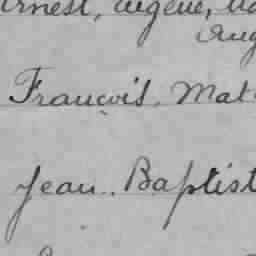 Ernest, Eugène,
Aug
François. Mat
Jean. Baptist